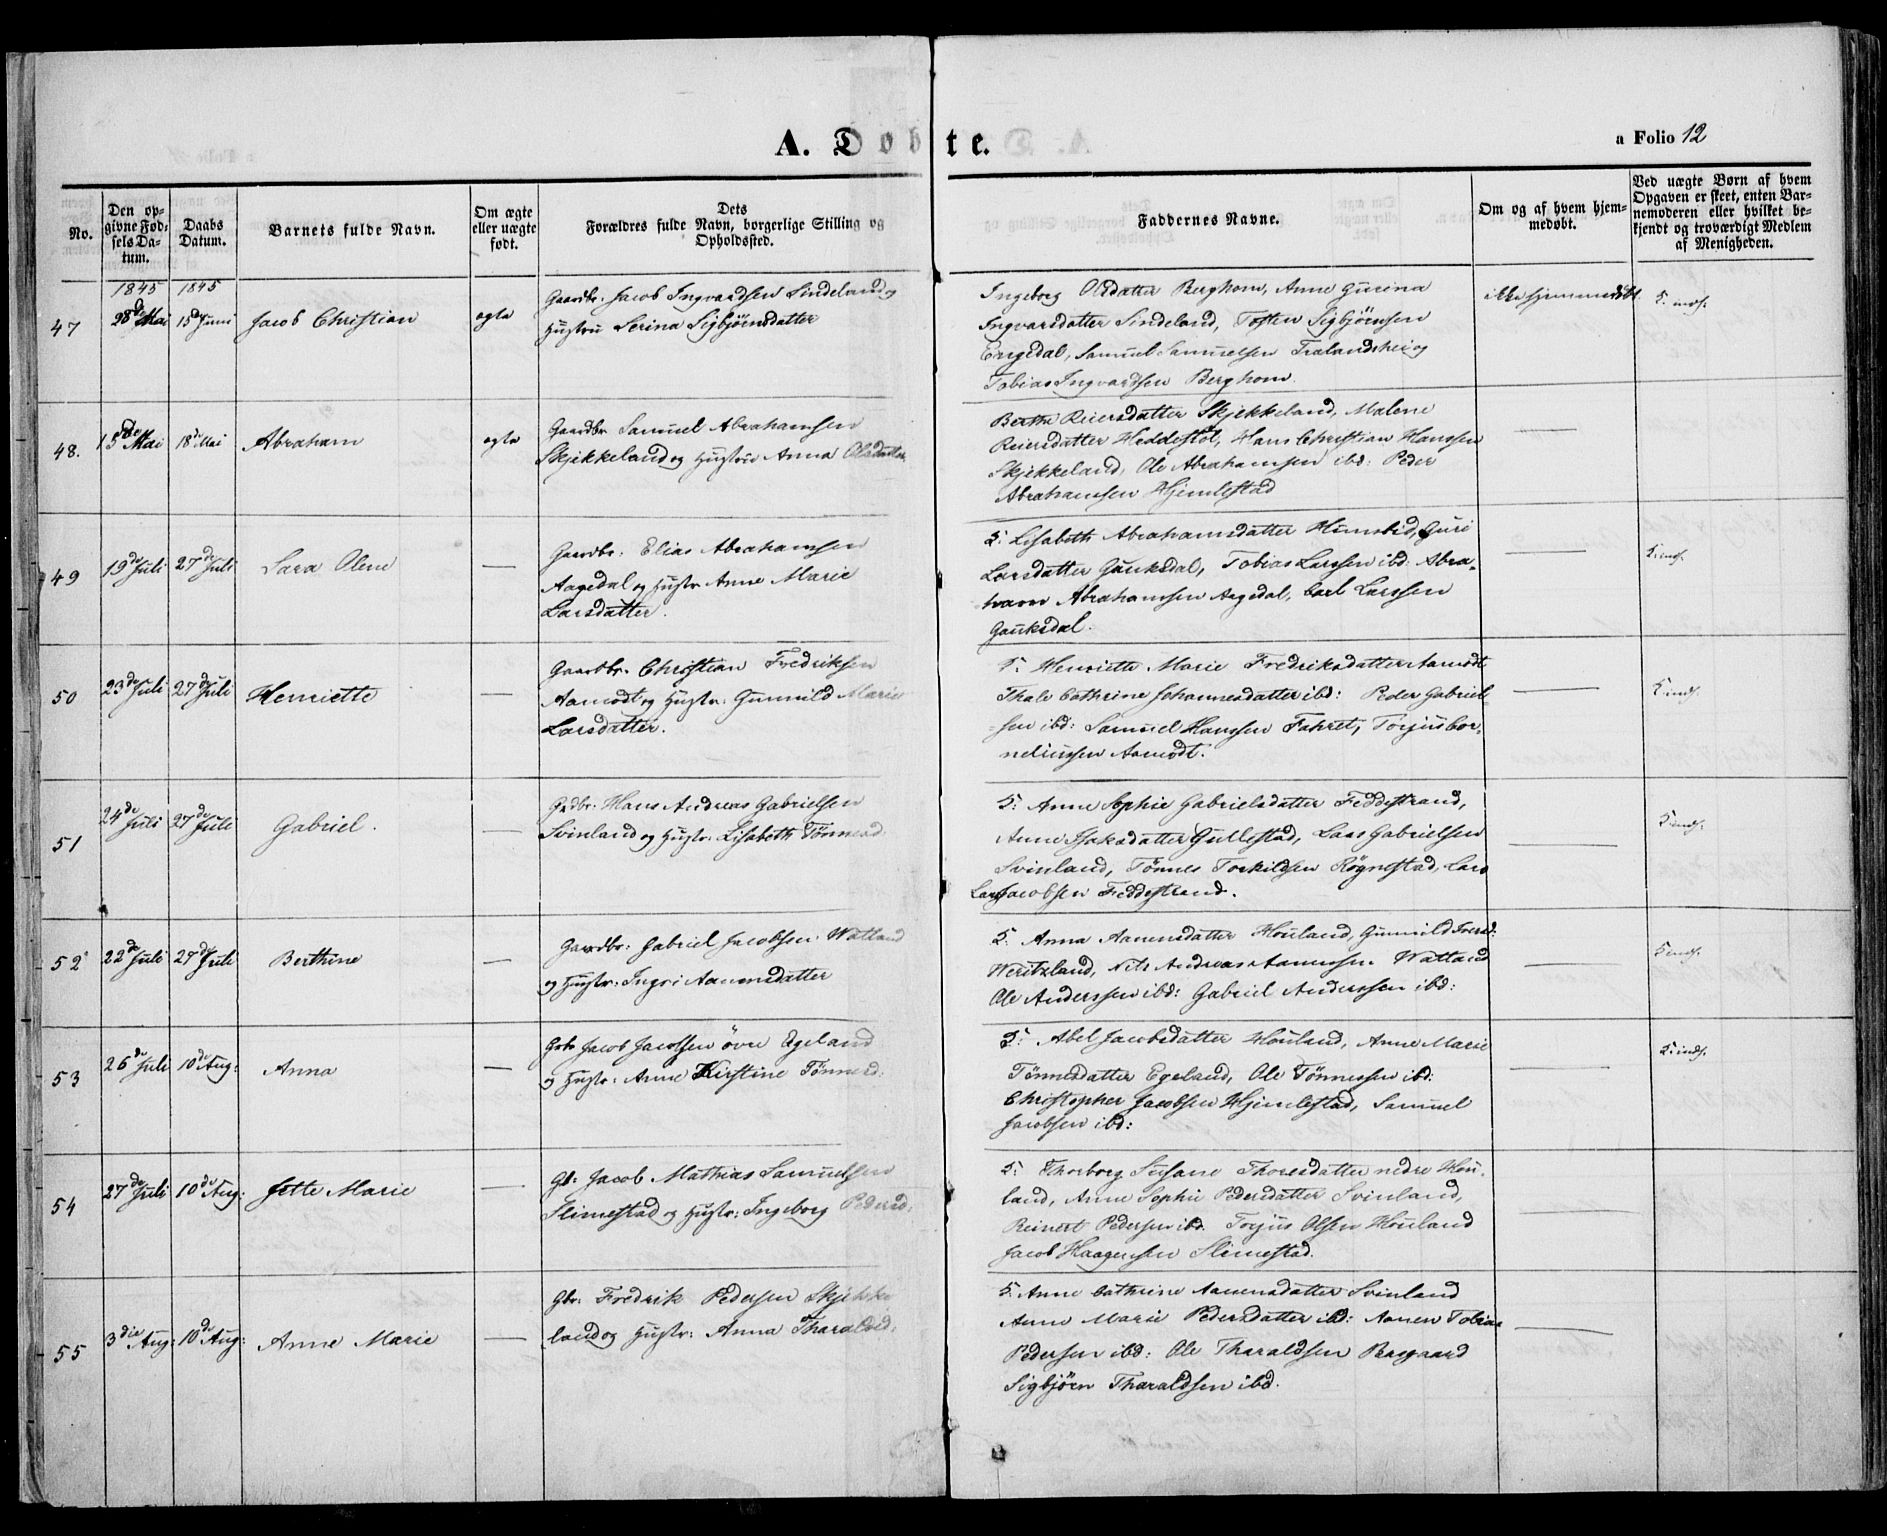 A. Døbte.
a Folio 12
No.
Den op-
givne Fød-
sels Da-
tum.
Daabs
Datum.
Barnets fulde Navn.
Om ægte
eller uægte
født.
Dets
Forældres fulde Navn, borgerlige Stilling og
Opholdssted.
Faddernes Navne.
Om og af hvem hjem-
medøbt.
Ved uægte Børn af hvem
Opgaven er skeet, enten Bar-
nemoderen eller hvilket be-
kjendt og troværdigt Medlem
af Menigheden.
1845 1845
47 28de Mai 15de Juni Jacob Christian ægte
Gaardbr. Jacob Ingvardsen Sindeland og
Hustru Serina Sigbjørnsdatter
Ingeborg Olsdatter Berghom, Anne Gurina
Ingvarsdatter Sindeland, Tosten Sigbjørnsen
Engedal, Samuel Samuelsen Trælandshei og
Tobias Ingvardsen Berghom.
ikke hjemmedøbt.
48. 15de Mai 18de Mai Abraham ægte
Gaardbr. Samuel Abrahamsen
Skjekkeland og Hustru Anna Olsdatter
Berthe Reiersdatter Skjekkeland, Malene
Reiersdatter Heddestøl, Hans Christian Hanssen
Skjekkeland, Ole Abrahamsen ibd: Peder
Abrahamsen Hjemlestad
49 19de Juli 27de Juli Sara Olene
Gaardbr: Elias Abrahamsen
Aagedal og Hustr: Anne Marie
Larsdatter.
Lisabeth Abrahamsdatter Guri
Larsdatter Gauksdal, Tobias Larssen ibd: Abra-
ham Abrahamsen Aagedal, Carl Larssen
Gauksdal.
50 23de Juli 27de Juli Henriette
Gaardbr. Christian Fredriksen
Aamodt og Hustr: Gunnild Marie
Larsdatter.
Henriette Marie Fredriksdatter Aamodt
Thale Cathrine Johannesdatter ibd: Peder Gabriel-
sen ibd: Samuel Hanssen Fahret, Torjus Cor-
neliussen Aamodt.
51 24de Juli 27de Juli Gabriel.
Gdbr: Hans Andreas Gabrielsen
Svinland og Hustr: Lisabeth Tønnesd.
Anne Sophie Gabrielsdatter Feddestrand,
Anne Isaksdatter Gullestad, Lars Gabrielsen
Svinland, Tønnes Torkildsen Røgnestad, Lars
Jacobsen Feddestrand.
52 22de Juli 27de Juli Berthine
Gaardbr: Gabriel Jacobsen Watland
og Hustr: Ingri Aanensdatter
Anna Aanensdatter Houland, Gunnild
Nils Andreas Aanensen Watland
Ole Anderssen ibd: Gabriel Anderssen ibd:
53 26de Juli 10de Aug: Anna
Gbr Jacob Jacobsen øvre Egeland
og Hustr: Anne Kirstine Tønnesd:
Abel Jacobsdatter Houland, Anne Marie
Tønnesdatter Egeland, Ole Tønnessen ibd:
Christopher Jacobsen Hjemlestad, Samuel
Jacobsen ibd:
54 27de Juli 10de Aug: Jette Marie
Gb: Jacob Mathias Samuelsen
Slimestad og Hustr: Ingeborg Pedersd:
Thorborg Susane Thoresdatter nedre Hou-
land, Anne Sophie Pedersdatter Svinland,
Reinert Pedersen ibd. Torjus Olsen Houland
Jacob Haagensen Slimestad.
55 3die Aug: 10de Aug: Anne Marie
Gbr: Fredrik Pedersen Skjekke
land og Hustr: Anna Tharaldsd:
Anne Cathrine Aanensdatter Svinland
Anne Marie Pedersdatter ibd: Aanen Tobias
Pedersen ibd: Ole Tharaldsen
Sigbjørn Tharaldsen ibd.